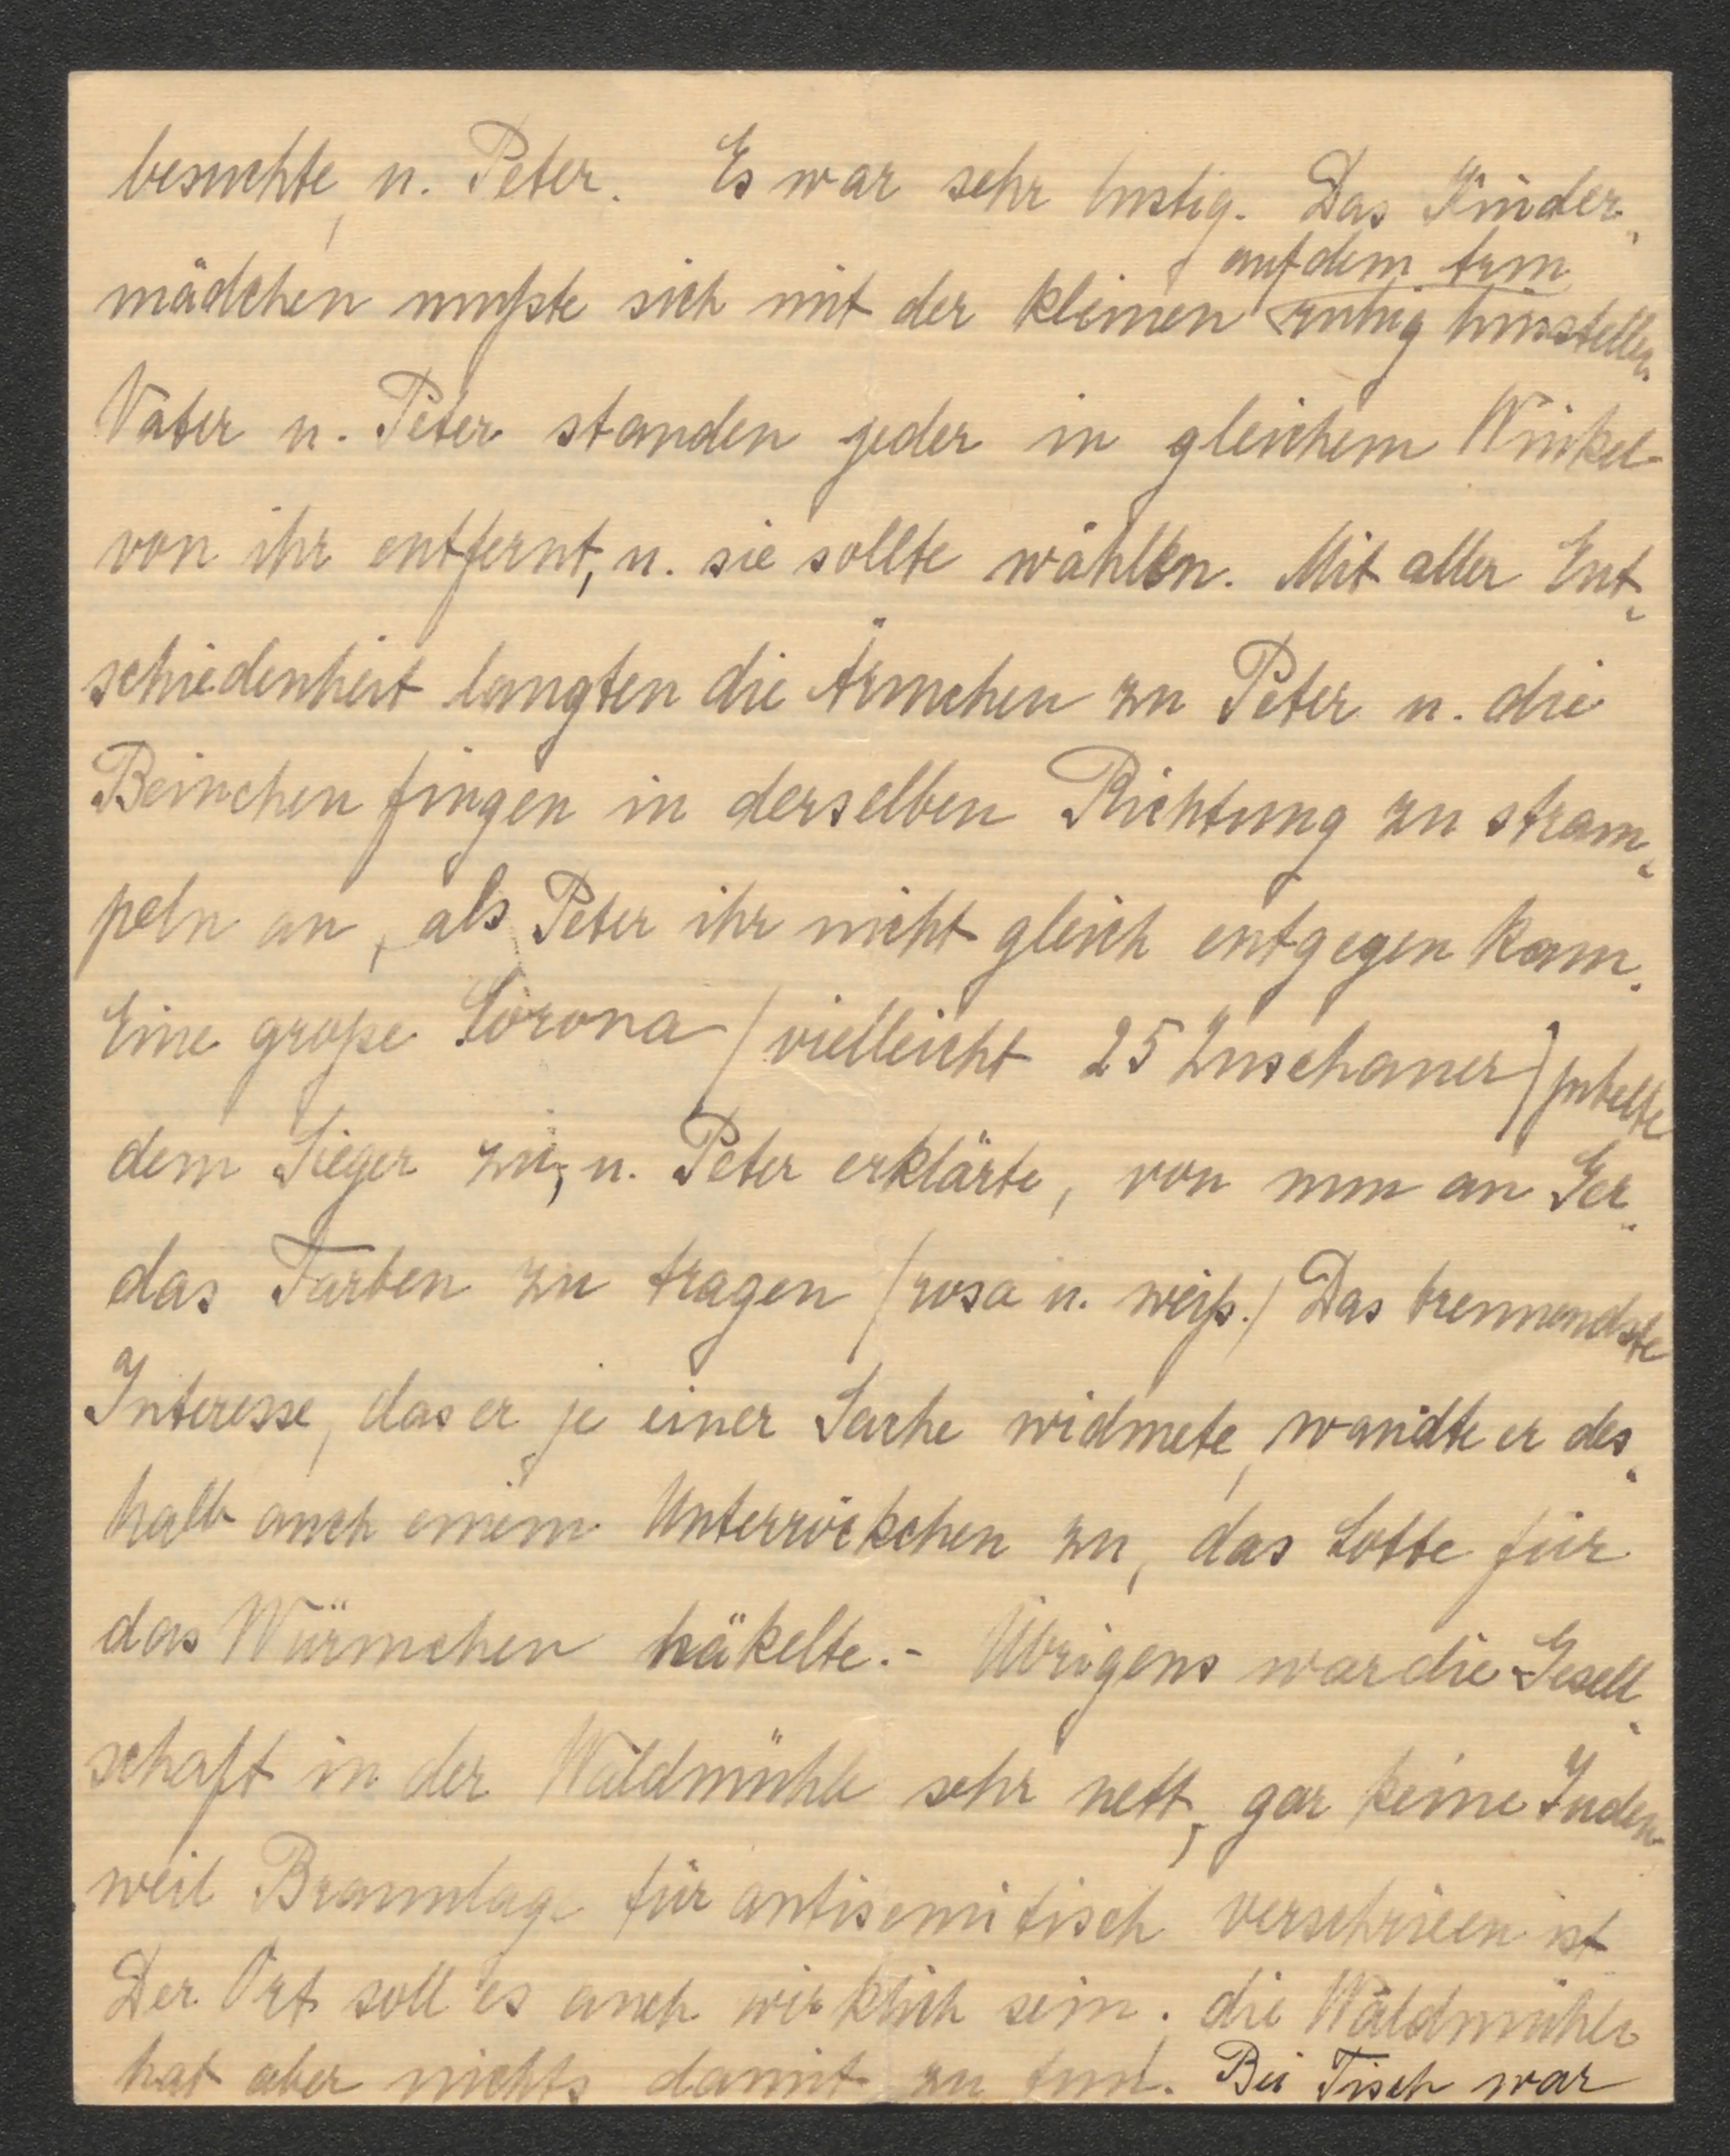 besuchte, u. Peter. Es war sehr lustig. Das Kinder-
auf dem Arm
mädchen mußte sich mit der kleinen ruhig hinstellen
Vater u. Peter standen jeder in gleichem Winkel
von ihr entfernt, u. sie sollte wählen. Mit aller Ent-
schiedenheit langten die Ärmchen zu Peter u. die
Beinchen fingen in derselben Richtung zu stram-
peln an, als Peter ihr nicht gleich entgegen kam.
Eine große Corona (vielleicht 25 Zuschauer) jubelte
dem Sieger zu, u. Peter erklärte, von nun an Ger-
das Farben zu tragen (rosa u. weiß.) Das brennendste
Interesse, das er je einer Sache widmete, wandte er des-
halb auch einem Unterröckchen zu, das Lotte für
das Würmchen häkelte.- Übrigens war die Gesell-
schaft in der Waldmühle sehr nett, gar keine Juden
weil Braunlage für antisemitisch verschrieen ist
Der Ort soll es auch wirklich sein. die Waldmühle
hat aber nichts damit zu tun. Bei Tisch war